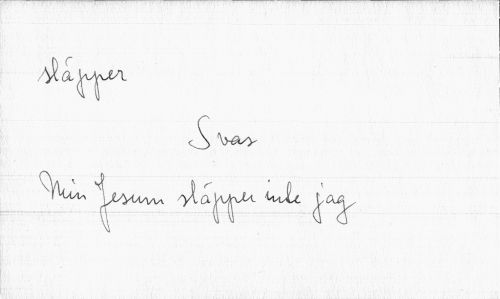 släpper
Svas
Min Jesum släpper inte jag